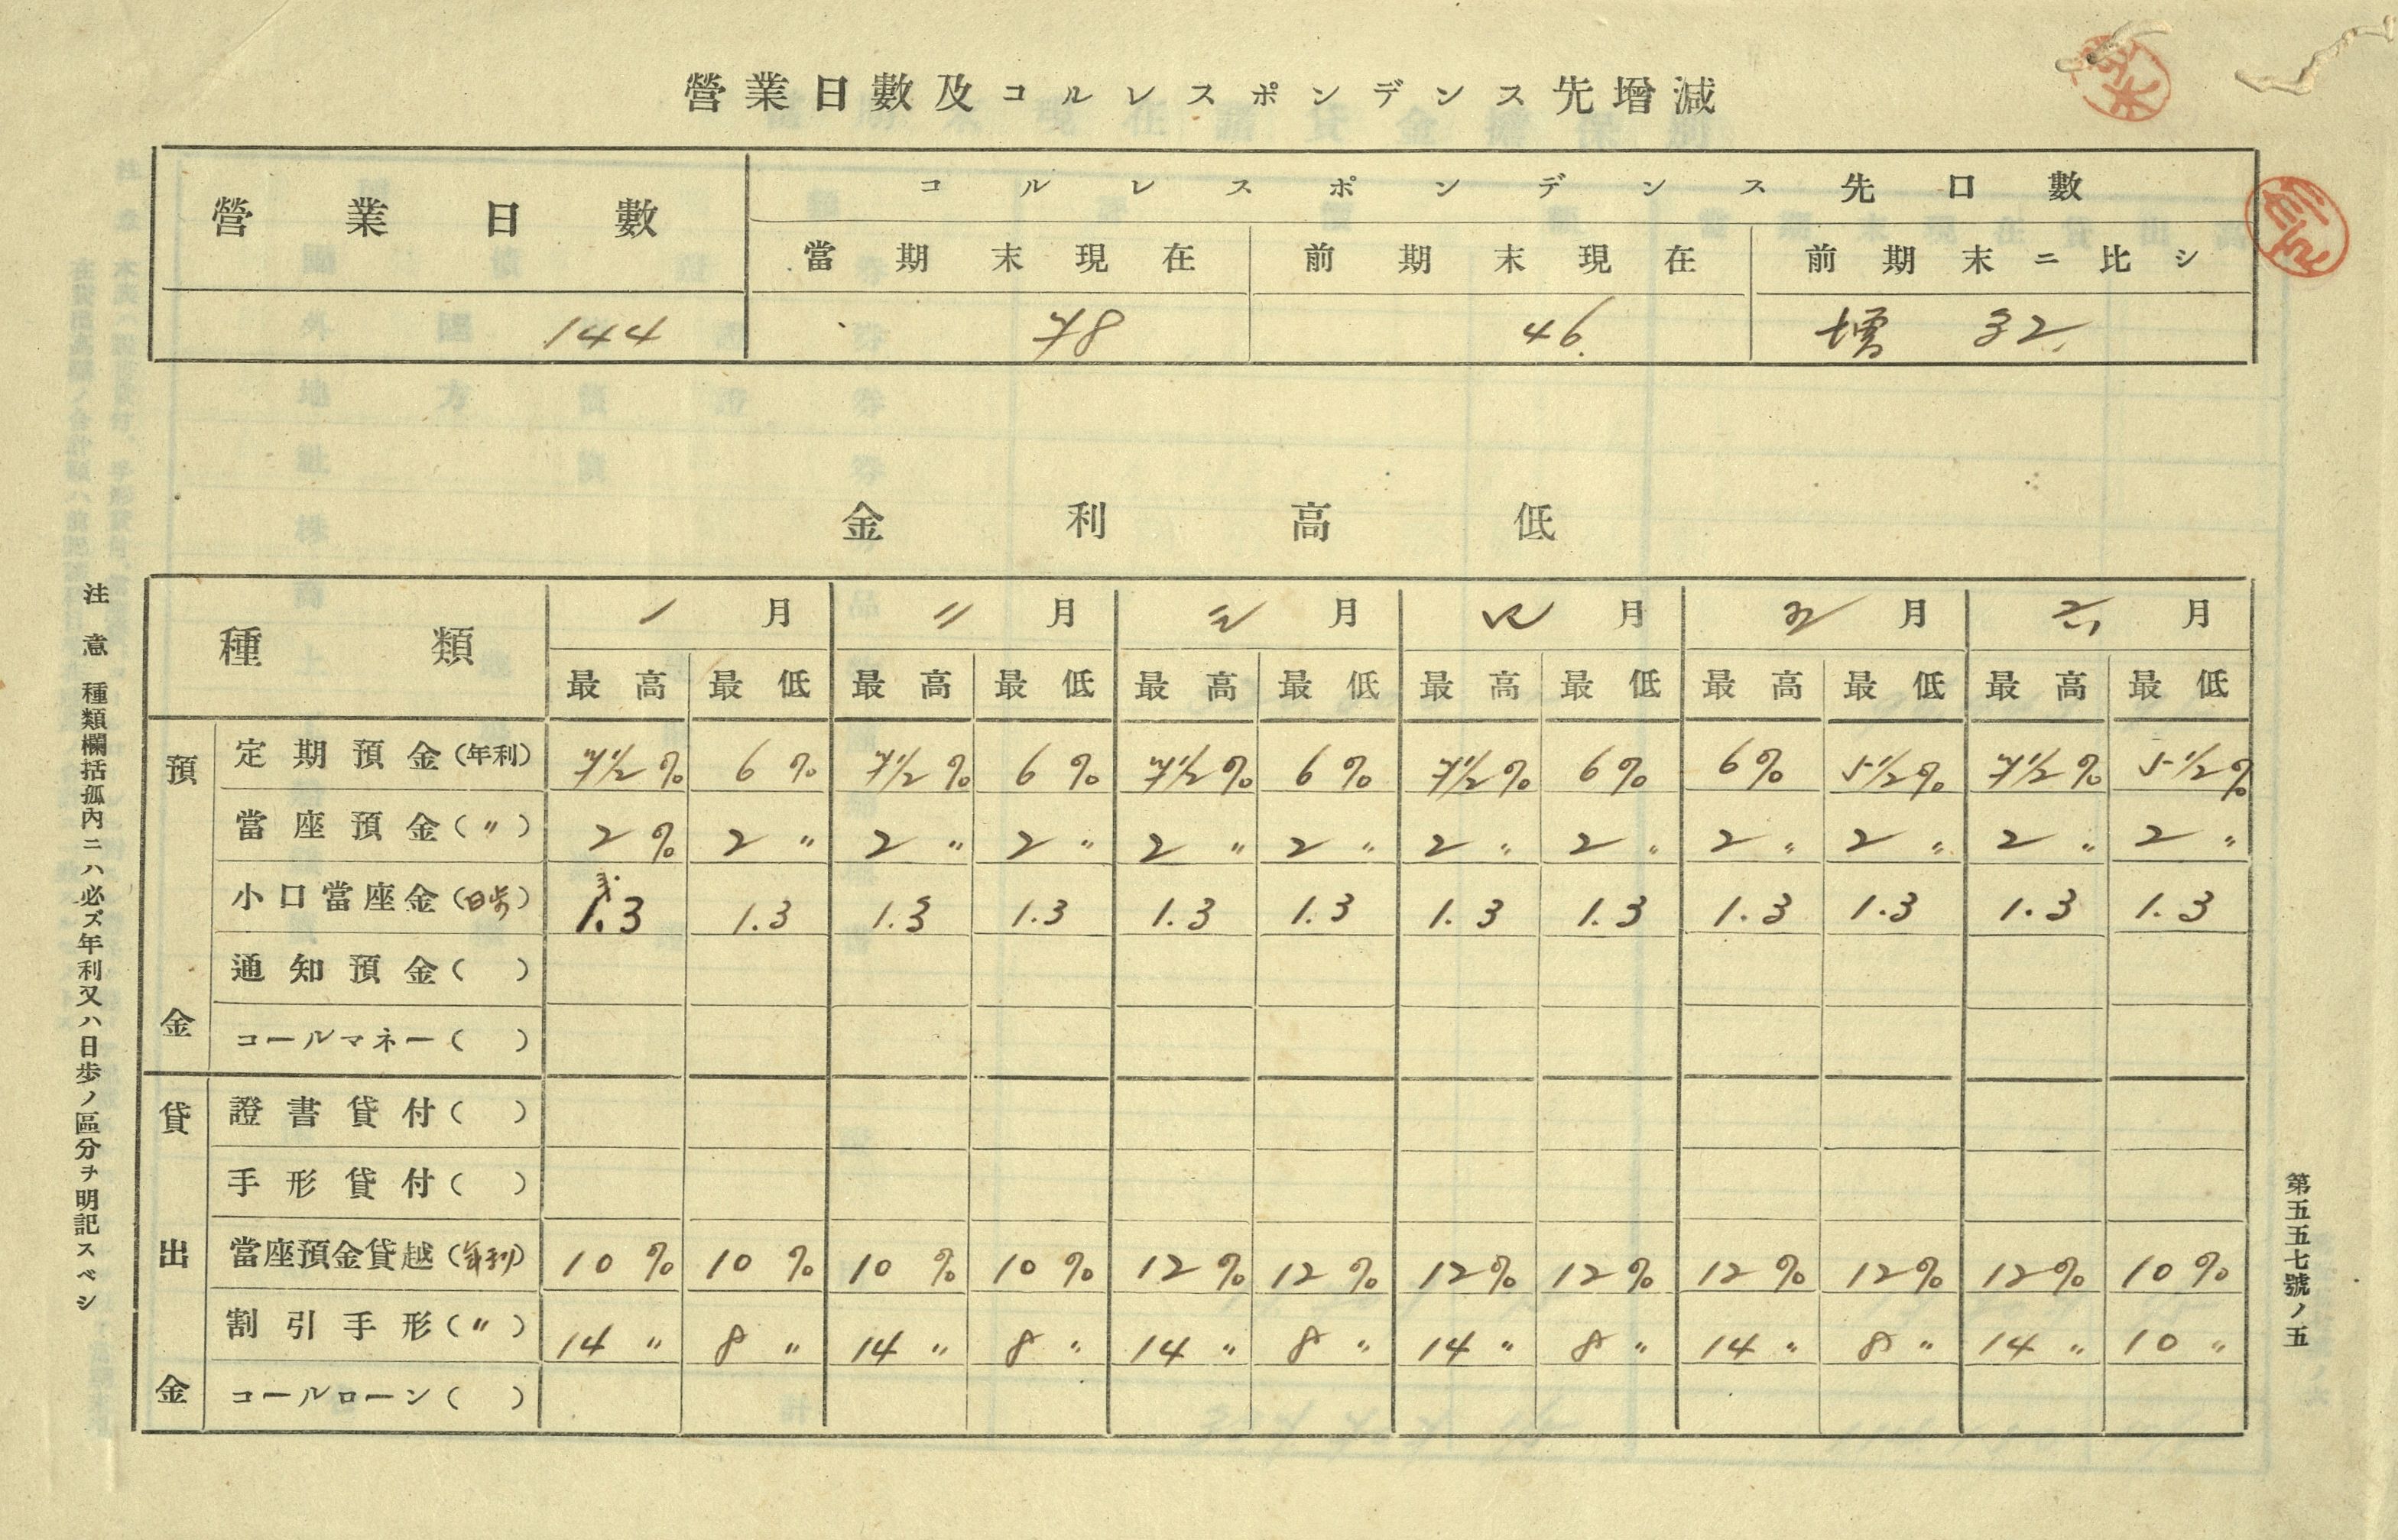 營業日數及コルレスポンデンス先增減
營業日數 コルレスポンデンス先口數
當期末現在 前期末現在 前期末ニ比シ
144 78 46 增 32
金利高低
種類 一月 二月 三月 四月 五月 六月
最高 最低 最高 最低 最高 最低 最高 最低 最高 最低 最高 最低
預金
定期預金(年利) 7 1/2% 6% 7 1/2% 6% 7 1/2% 6% 7 1/2% 6% 6% 5 1/2% 7 1/2% 5 1/2%
當座預金(〃) 2% 2〃 2〃 2〃 2〃 2〃 2〃 2〃 2〃 2〃 2〃 2〃
小口當座金(日歩) 1.3 1.3 1.3 1.3 1.3 1.3 1.3 1.3 1.3 1.3 1.3 1.3
通知預金( )
コールマネー( )
貸出金
證書貸付( )
手形貸付( )
當座預金貸越(年利) 10% 10% 10% 10% 12% 12% 12% 12% 12% 12% 12% 10%
割引手形(〃) 14〃 8〃 14〃 8〃 14〃 8〃 14〃 8〃 14〃 8〃 14〃 10〃
コールローン( )
注意 種類欄括孤內ニハ必ズ年利又ハ日歩ノ區分ヲ明記スベシ
第五五七號ノ五